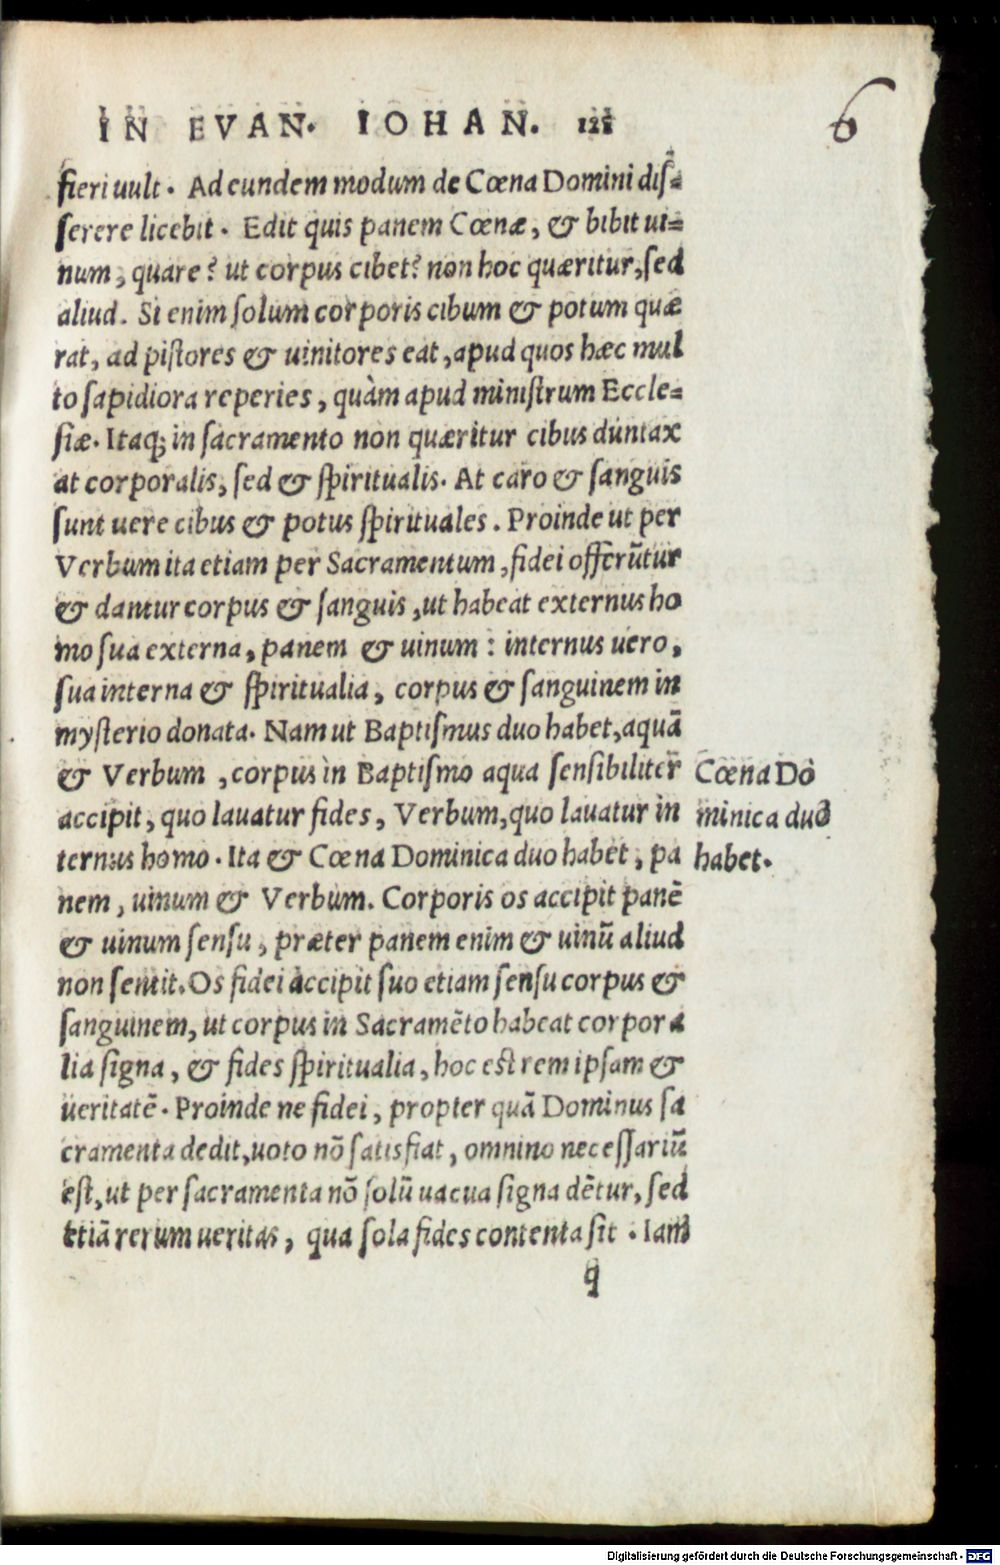 IN EVAN. IOHAN. 121
6
fieri uult. Ad eundem modum de Cœna Domini dis=
serere licebit. Edit quis panem Cœnæ, & bibit ui=
num, quare? ut corpus cibet? non hoc quæritur, sed
aliud. Si enim solum corporis cibum & potum quæ
rat, ad pistores & uinitores eat, apud quos hæc mul
to sapidiora reperies, quàm apud ministrum Eccle=
siæ. Itaq; in sacramento non quæritur cibus duntax
at corporalis, sed & spiritualis. At caro & sanguis
sunt uere cibus & potus spirituales. Proinde ut per
Verbum ita etiam per Sacramentum, fidei offerũtur
& dantur corpus & sanguis, ut habeat externus ho
mo sua externa, panem & uinum: internus uero,
sua interna & spiritualia, corpus & sanguinem in
mysterio donata. Nam ut Baptismus duo habet, aquã
& Verbum, corpus in Baptismo aqua sensibiliter
accipit, quo lauatur fides, Verbum, quo lauatur in
ternus homo. Ita & Cœna Dominica duo habet, pa
nem, uinum & Verbum. Corporis os accipit panẽ
& uinum sensu, præter panem enim & uinũ aliud
non sentit. Os fidei accipit suo etiam sensu corpus &
sanguinem, ut corpus in Sacramẽto habeat corpora
lia signa, & fides spiritualia, hoc est rem ipsam &
ueritatẽ. Proinde ne fidei, propter quã Dominus sa
cramenta dedit, uoto nõ satisfiat, omnino necessariũ
est, ut per sacramenta nõ solũ uacua signa dẽtur, sed
etiã rerum ueritas, qua sola fides contenta sit. Iam
q
Cœna Do
minica duo
habet.
Digitalisierung gefördert durch die Deutsche Forschungsgemeinschaft - DFG